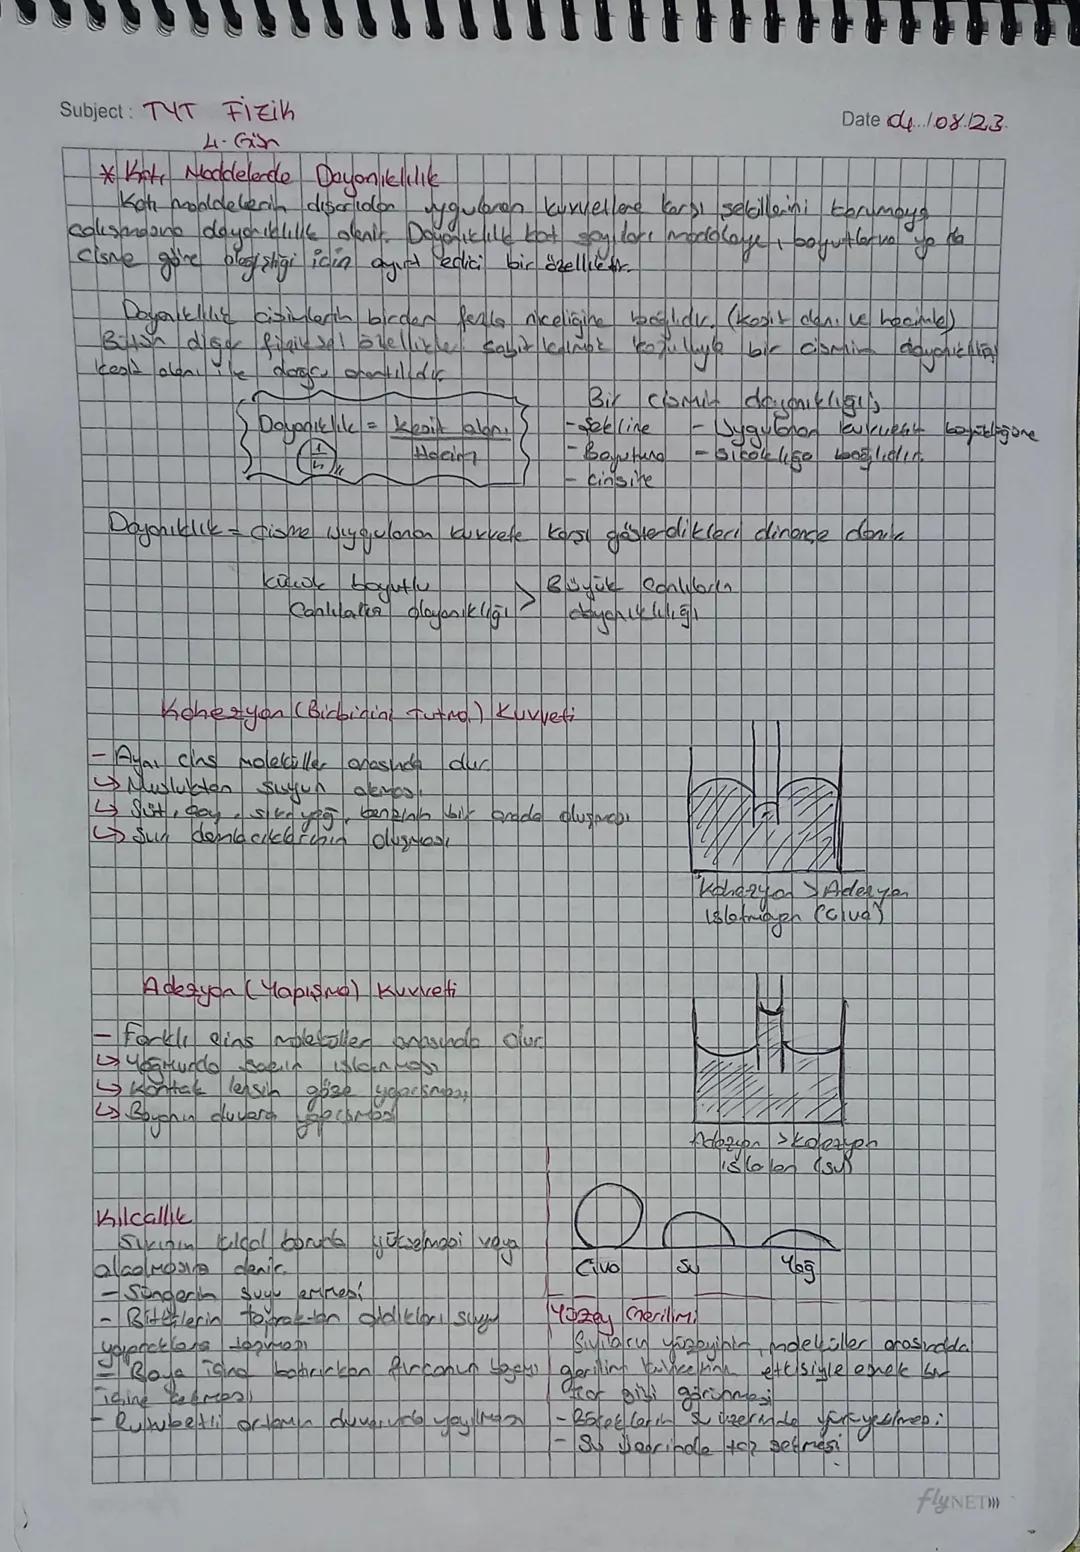 Subject: TYT Fizik
Date 04../08.123.
4. Gün
* Katı Maddelerde Dayanıklılık
Katı maddelerin dışarıdan uygulanan kuvvetlere karşı şekillerini korumaya
çalışmasına dayanıklılık denir. Dayanıklılık kat sayıları maddeye, boyutlarına ya da
cisme göre için ayırt edici bir özelliktir.
Dayanıklılık cisimlerin birden fazla niceliğine bağlıdır. (kesit alanı ve hacimle)
Bütün diğer fiziksel özellikler sabit kalmak koşuluyla bir cismin dayanıklılığı
kesit alanı ile doğru orantılıdır.
Dayanıklılık = Kesit alanı
Hacim
1
h
Bir cismin dayanıklığı;
- Şekline - Uygulanan kuvvetin büyüklüğüne
- Boyutuna - Sıcaklığa bağlıdır.
- cinsine
Dayanıklılık = Cisme uygulanan kuvvete karşı gösterdikleri dirence denir
küçük boyutlu > Büyük Canlıların
Canlıların dayanıklığı dayanıklılığı
Kohezyon (Birbirini tutma) Kuvveti
- Aynı cins moleküller arasında olur
↳ Musluktan suyun akması.
↳ Süt, çay, sıvı yağ, benzinin bir arada oluşması
↳ Suın damlacıklarının oluşması
Kohezyon > Adezyon
ıslatmayan (civa)
Adezyon (Yapışma) Kuvveti
- Farklı cins moleküller arasında olur
↳ Yağmurda saçın ıslanması
↳ Kontak lensin göze yapışması,
↳ Boyanın duvara yapışması
Adezyon > Kohezyon
ıslatan (su)
Civa Su Yağ
Kılcallık
Sıvının kılcal boruda yükselmesi veya
alçalmasına denir.
- Süngerin suyu emmesi
- Bitkilerin topraktan aldıkları suyu
yapraklara taşıması
- Boya içine batırılan fırçanın boyayı
içine çekmesi
- Rutubetli ortamın duvarında yayılması
Yüzey Gerilimi
Sıvıların yüzeyinin, moleküller arasındaki
gerilim kuvvetinin etkisiyle esnek bir
zar gibi görünmesi
- Böceklerin su üzerinde yürüyebilmesi
- Su üzerinde toz
flyNET